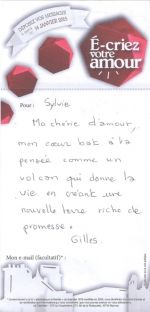 DÉPOSEZ VOS MESSAGES
14 JANVIER 2015
É-criez
votre
amour
Pour : Sylvie
Ma chérie d'amour,
mon cœur bat à ta
pensée comme un
volcan qui donne la
vie en créant une
nouvelle terre riche de
promesse.
Gilles.
Mon e-mail (facultatif)* :